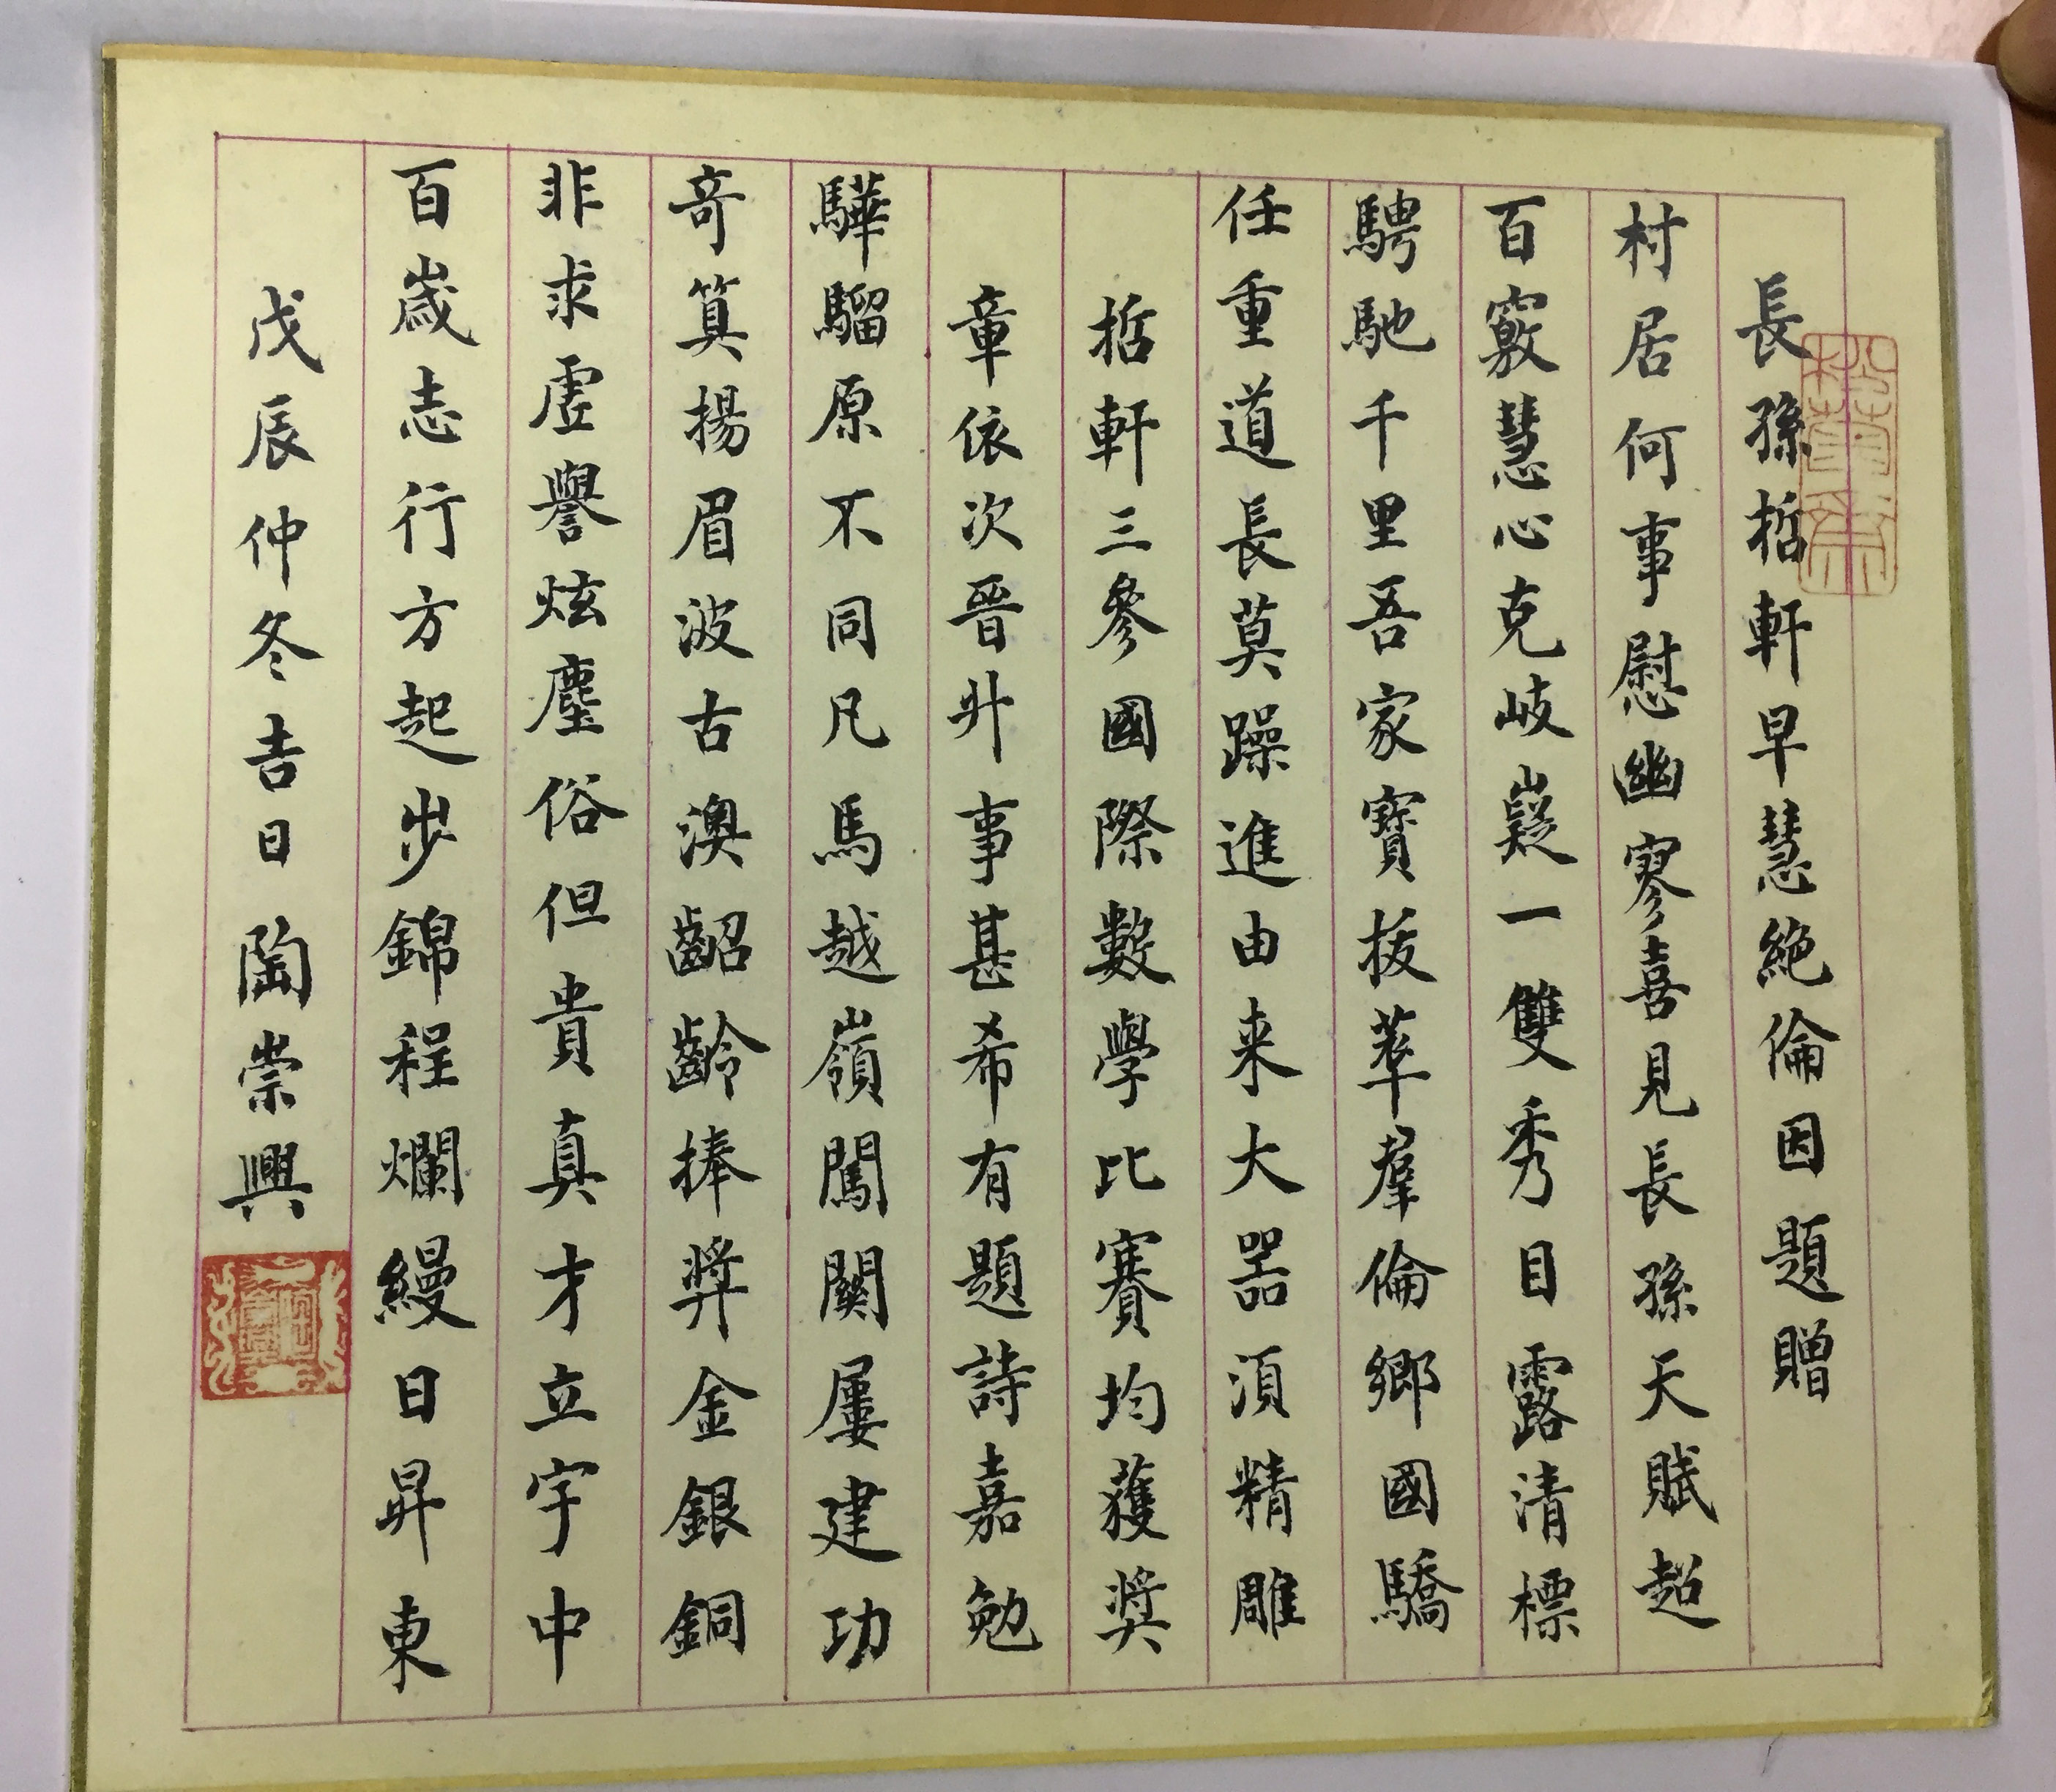 長孫哲軒早慧絶倫因題贈
村居何事慰幽寥喜見長孫天賦超
百竅慧心克岐嶷一雙秀目露清標
騁馳千里吾家寶拔萃羣倫鄉國驕
任重道長莫躁進由来大器須精雕
哲軒三參國際數學比賽均獲奖
章依次晉升事甚希有題詩嘉勉
驊騮原不同凡馬越嶺闖關屢建功
奇算揚眉波古澳齠齡捧奖金銀銅
非求虛譽炫塵俗但貴真才立宇中
百歲志行方起步錦程爛縵日昇東
戊辰仲冬吉日 陶崇興